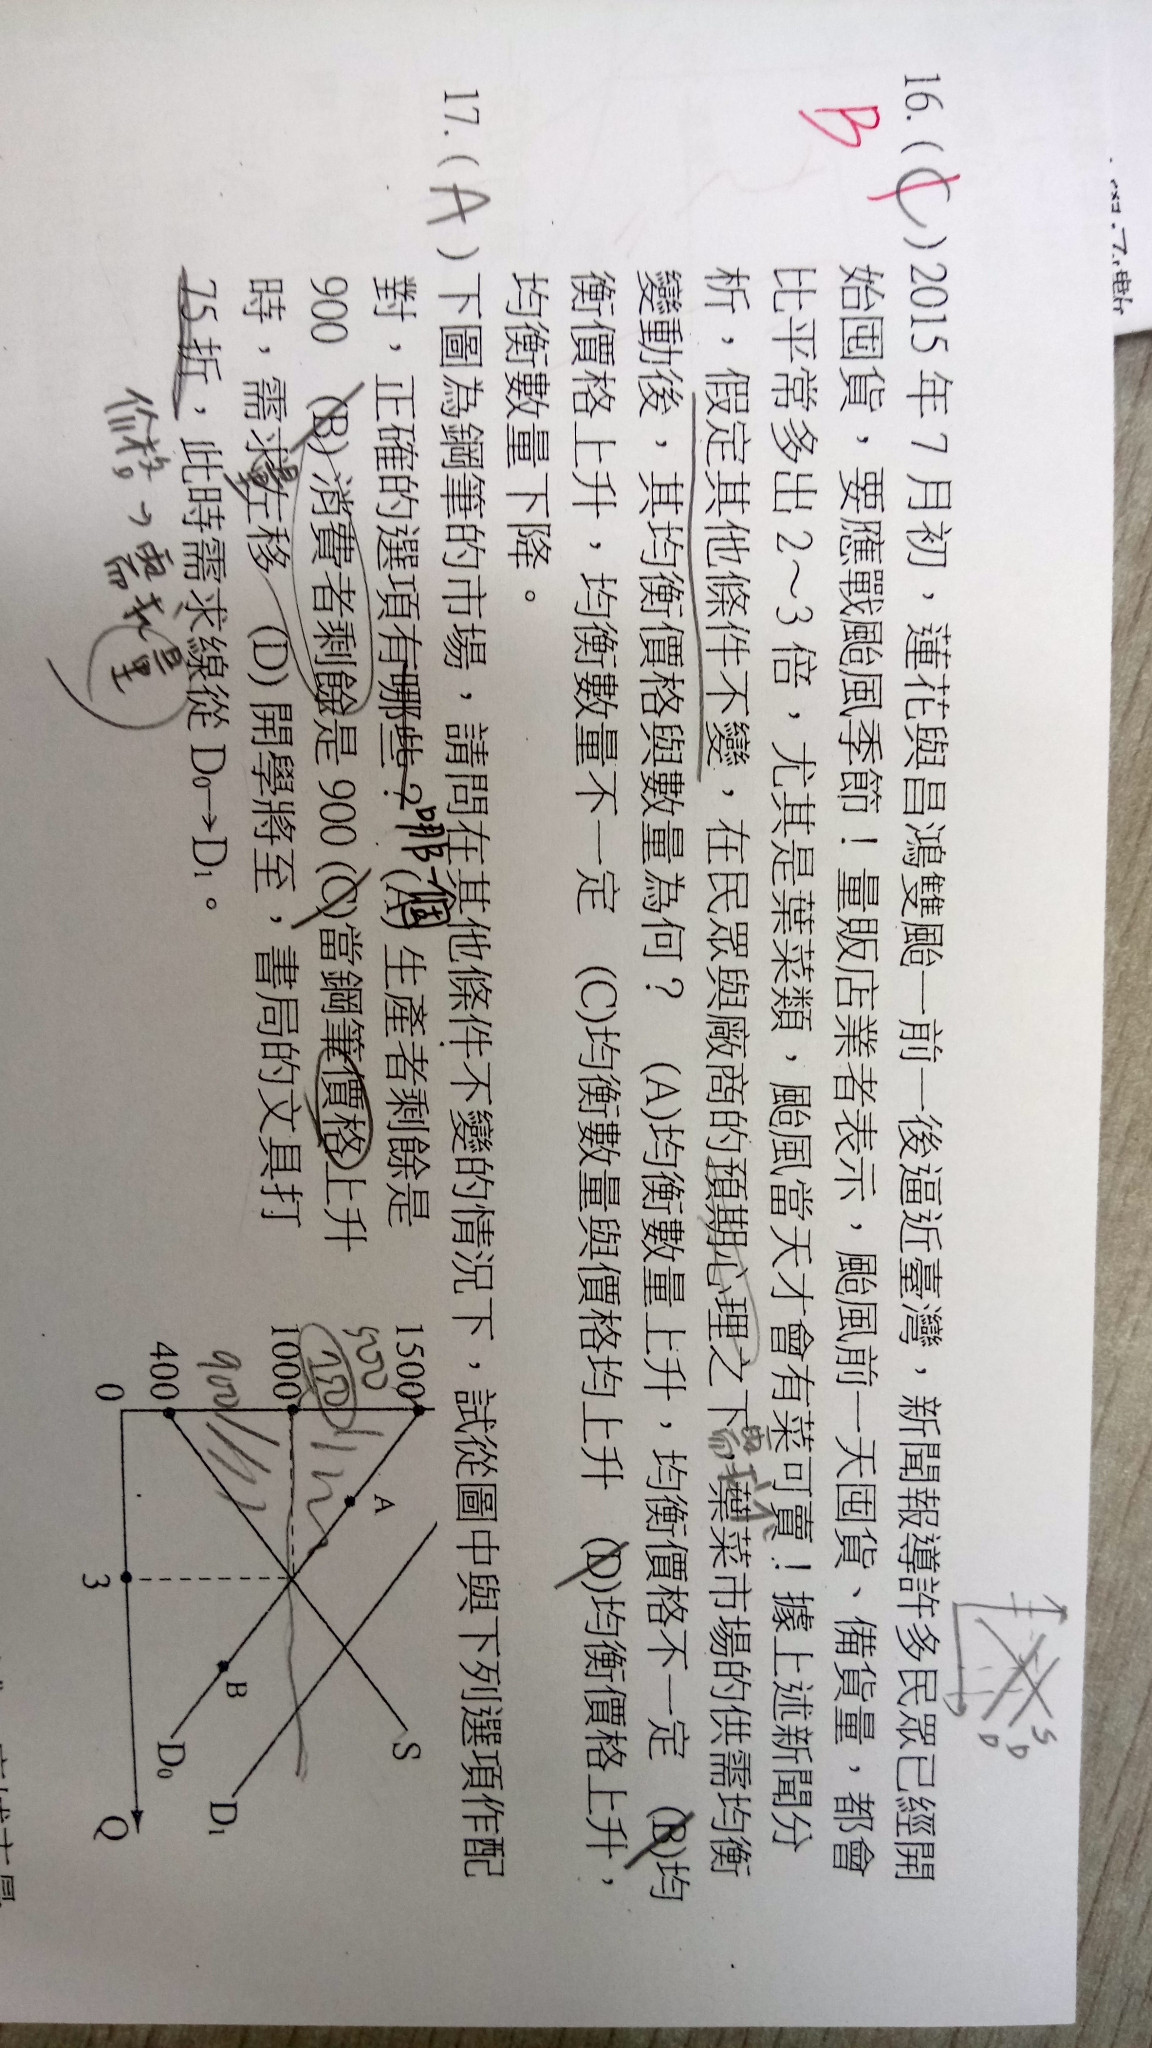 16.(C)2015年7月初，蓮花與昌鴻雙颱一前一後逼近臺灣，新聞報導許多民眾已經開
B
始囤貨，要應戰颱風季節！量販店業者表示，颱風前一天囤貨、備貨量，都會
比平常多出2～3倍，尤其是葉菜類，颱風當天才會有菜可賣！據上述新聞分
析，假定其他條件不變，在民眾與廠商的預期心理之下，葉菜市場的供需均衡
變動後，其均衡價格與數量為何？ (A)均衡數量上升，均衡價格不一定 (B)均
衡價格上升，均衡數量不一定 (C)均衡數量與價格均上升 (D)均衡價格上升，
均衡數量下降。
S
D
D
17.(A)下圖為鋼筆的市場，請問在其他條件不變的情況下，試從圖中與下列選項作配
對，正確的選項有哪些？(A)生產者剩餘是
哪一個
900 (B)消費者剩餘是900 (C)當鋼筆價格上升
時，需求左移 (D)開學將至，書局的文具打
量
75折，此時需求線從D₀→D₁。
價格→需求量
1500
500
750
1000
900
400
0
3
A
B
S
D₀
D₁
Q